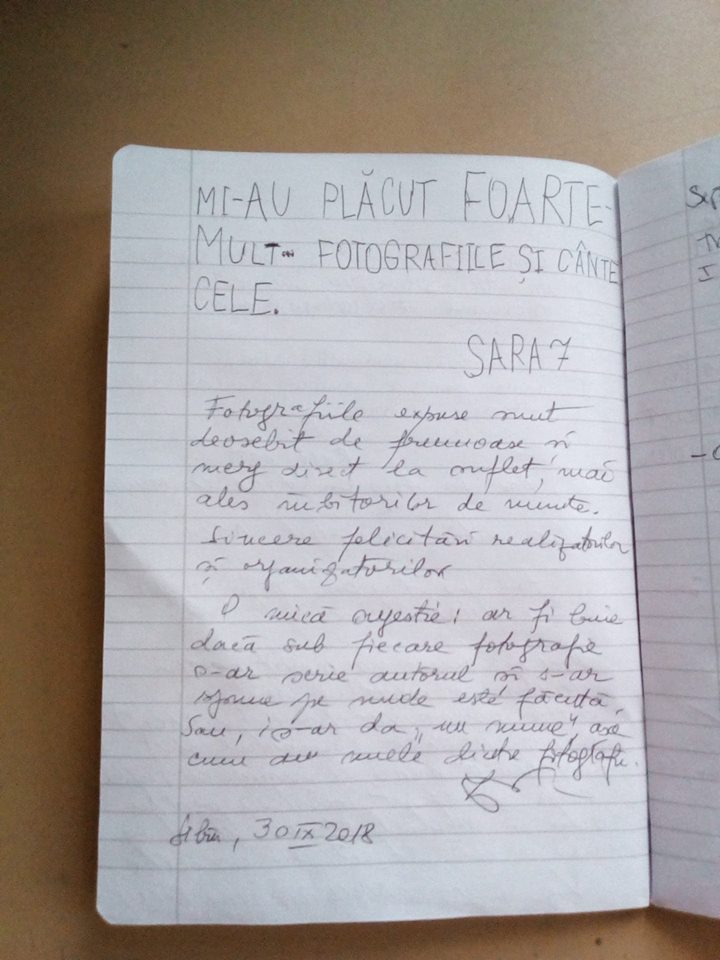 MI-AU PLĂCUT FOARTE-
MULT- FOTOGRAFIILE ȘI CÂNTE
CELE.
SARA 7
Fotografiile expuse sunt
deosebit de frumoase și
merg direct la suflet, mai
ales iubitorilor de munte.
Sincere felicitări realizatorilor
și organizatorilor
O mică sugestie: ar fi bine
dacă sub fiecare fotografie
s-ar scrie autorul și s-ar
spune pe unde este făcută,
Sau, i s-ar da „un nume", așa
cum au unele dintre fotografii.
Sibiu, 30 IX 2018